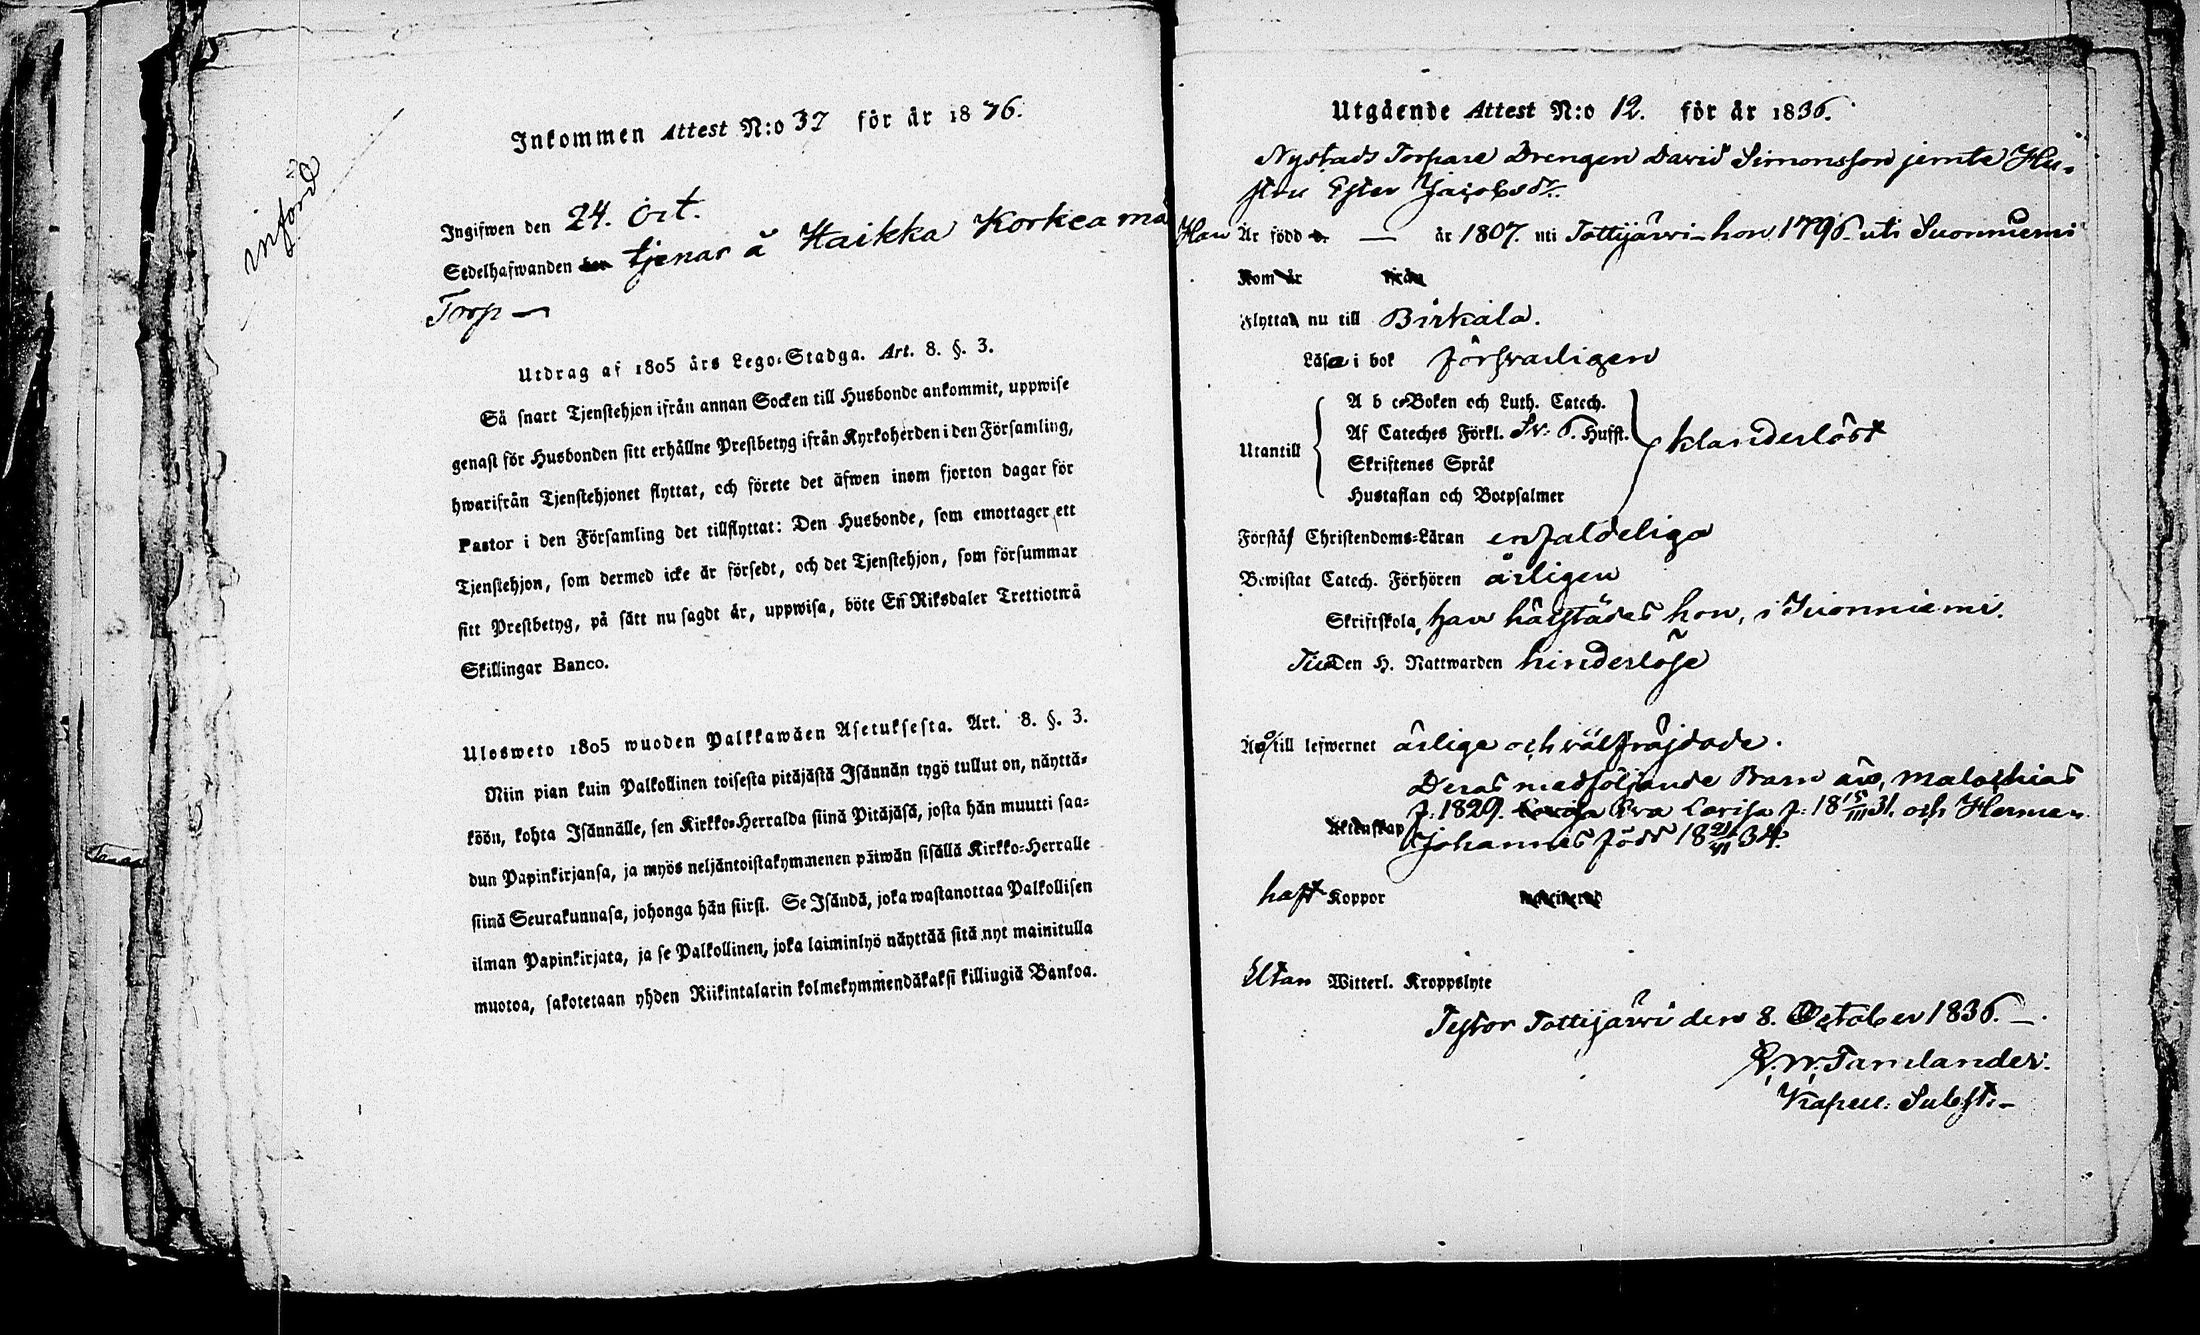 införd
Inkommen Attest N:o 37 för år 1836.
Ingifwen den 24. Oct.
Sedelhafwanden har tjenar å Haikka Korkea mä
Torp —
Utdrag af 1805 års Lego-Stadga. Art. 8. §. 3.
Så snart Tjenstehjon ifrån annan Socken till Husbonde ankommit, uppwise
genast för Husbonden sitt erhållne Prestbetyg ifrån Kyrkoherden i den Församling,
hwarifrån Tjenstehjonet flyttat, och förete det äfwen inom fjorton dagar för
Pastor i den Församling det tillflyttat: Den Husbonde, som emottager ett
Tjenstehjon, som dermed icke är försedt, och det Tjenstehjon, som försummar
sitt Prestbetyg, på sätt nu sagdt är, uppwisa, böte En Riksdaler Trettiotwå
Skillingar Banco.
Ulosweto 1805 wuoden Palkkawäen Asetuksesta. Art. 8. §. 3.
Niin pian kuin Palkollinen toisesta pitäjästä Isännän tygö tullut on, näyttä-
köön, kohta Isännälle, sen Kirkko-Herralda siinä Pitäjäsä, josta hän muutti saa-
dun Papinkirjansa, ja myös neljäntoistakymmenen päiwän sisällä Kirkko-Herralle
siinä Seurakunnasa, johonga hän siirst. Se Isändä, joka wastanottaa Palkollisen
ilman Papinkirjata, ja se Palkollinen, joka laiminlyö näyttää sitä nyt mainitulla
muotoa, sakotetaan yhden Riikintalarin kolmekymmendäkaksi killingiä Bankoa.
Utgående Attest N:o 12. för år 1836.
Nystads Torpare Drengen David Simonsson jemte Hu-
stru Ester Jacobsdr.
Han Är född d. — år 1807. uti Tottijärwi – hon 1796. uti Suonniemi
Kom år från
Flytta nu till Birkala.
Läsa i bok försvarligen
A b c-Boken och Luth. Catech.
Utantill Af Cateches Förkl. Sv: o. Hufst. klanderlöst
Skriftenes Språk
Hustaflan och Botpsalmer
Förstå Christendoms-Läran enfaldeliga
Bewistat Catech. Förhören årligen
Skriftskola, han härstädes hon, i Suonniemi.
Den H. Nattwarden hinderlöse
Äro till lefwernet ärlige och välfräjdade.
Deras medföljande Barn äro, Malachias
f: 1829. Eva Lovisa f: 18 15/III 31. och Herman
Äktenskap Johannes född 18 21/VI 34.
haft Koppor vaccinerad
Utan Witterl. Kroppslyte
Testor Tottijärwi den 8. October 1836. —
Tamlander.
Kapell: Subst: –